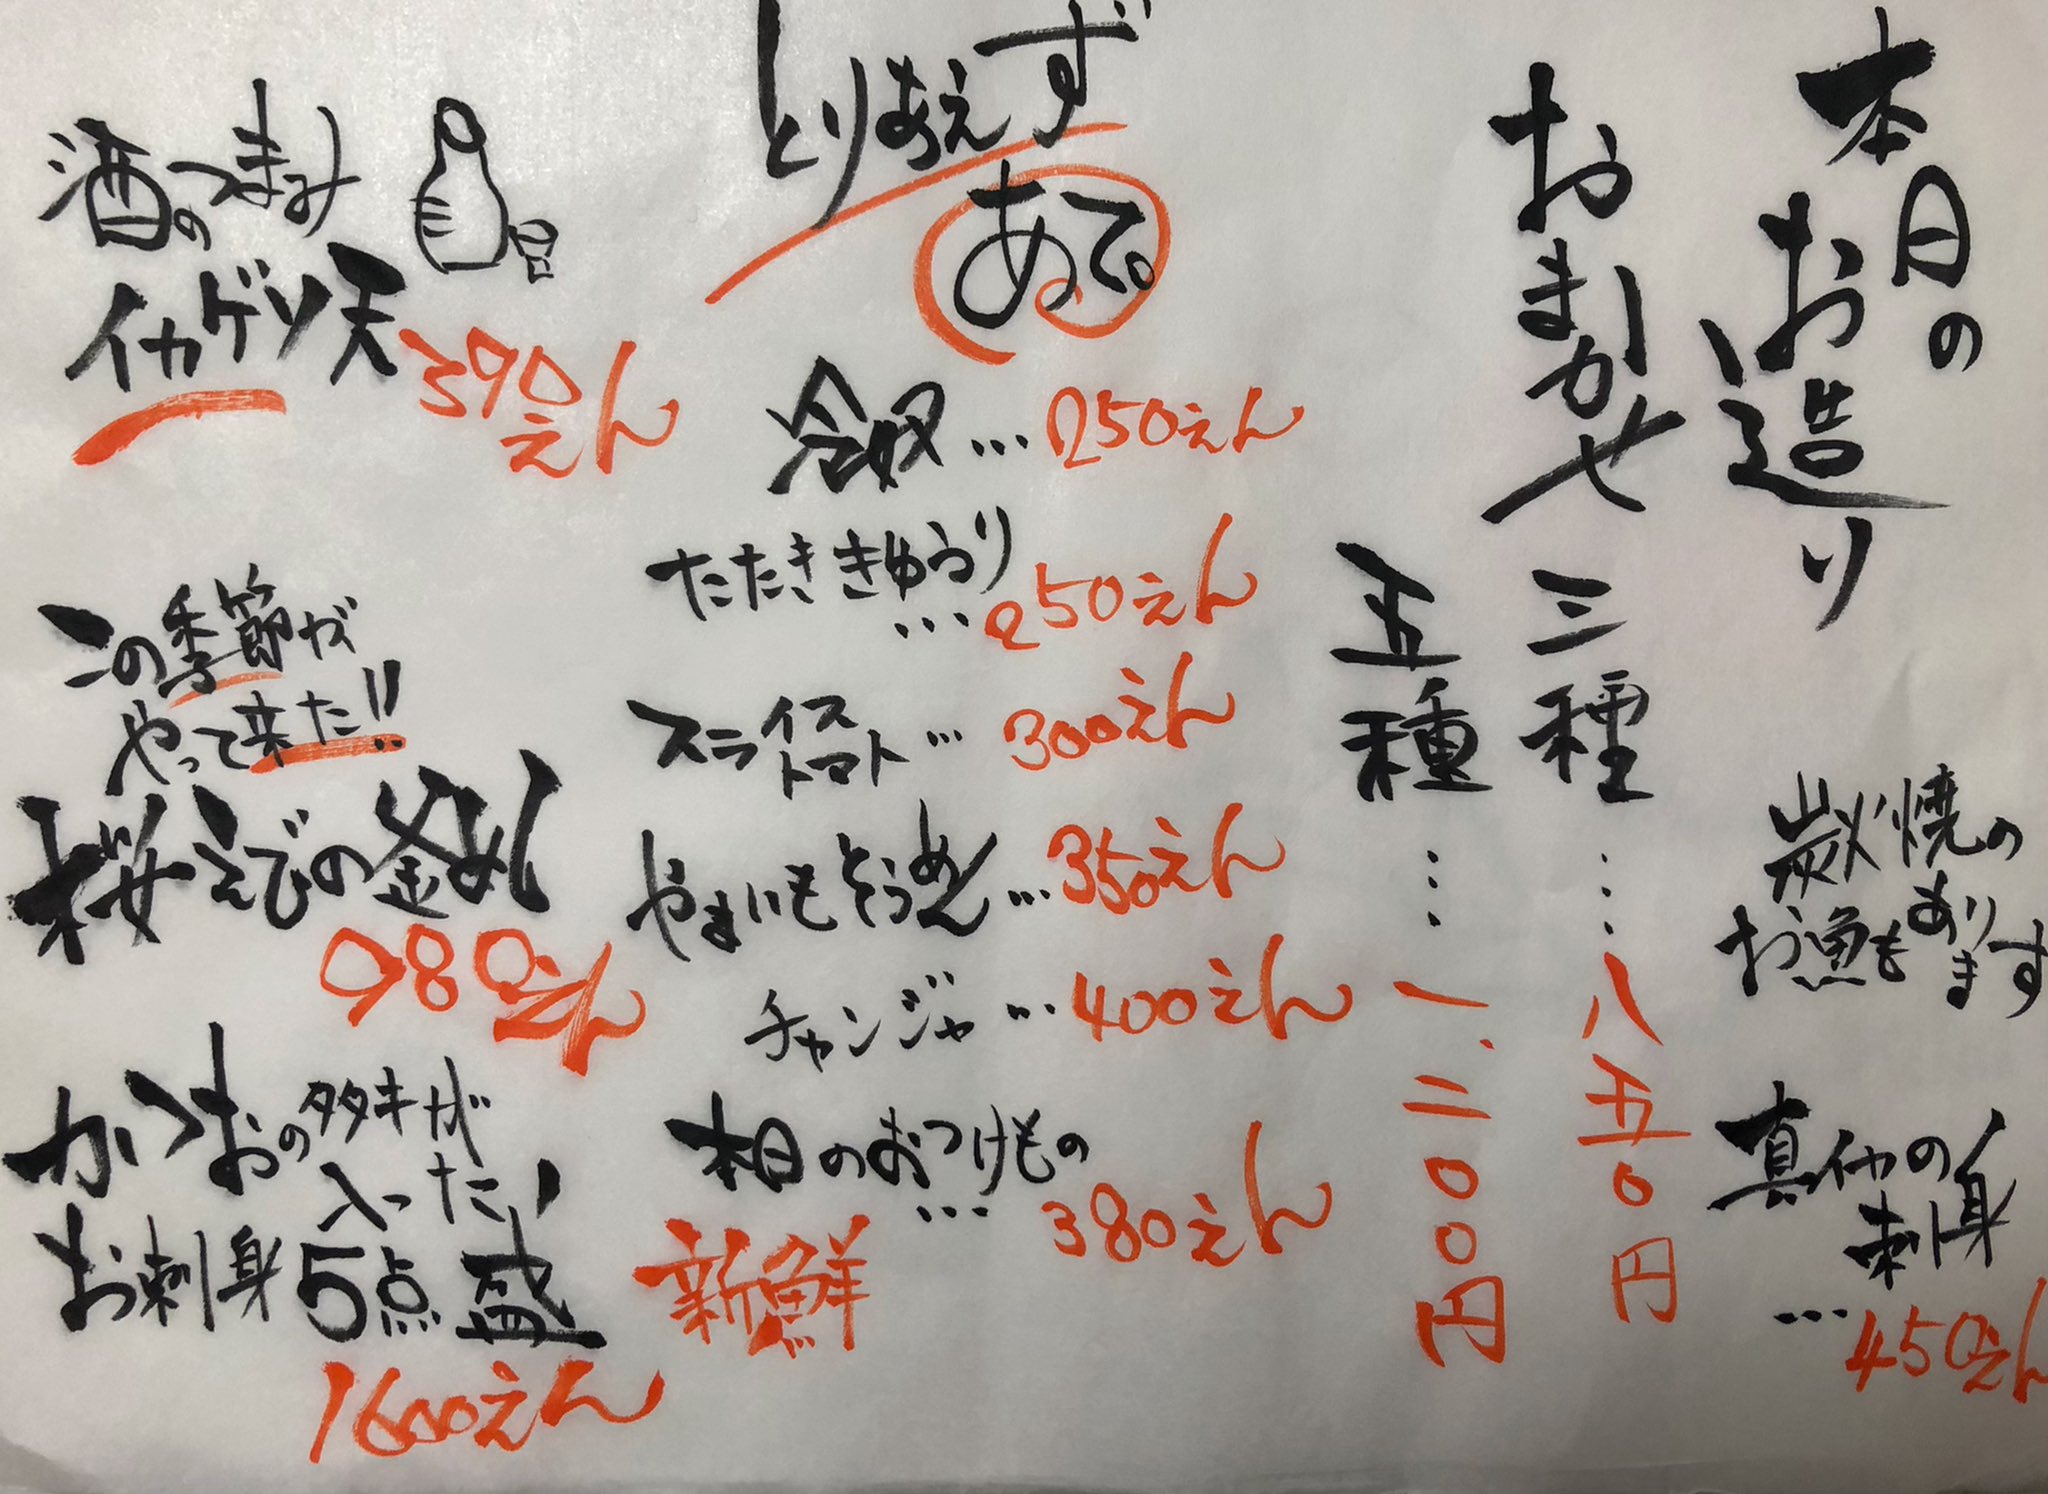 本日の
お造り
おまかせ
三種…八五〇円
五種…一、二〇〇円
炭火焼の
お魚も
あります
真イカの
刺身
…450えん
とりあえず
あて。
冷奴…250えん
たたききゅうり
…250えん
スライス
トマト…300えん
やまいもそうめん…350えん
チャンジャ…400えん
本日のおつけもの
…380えん
新鮮
酒のつまみ
イカゲソ天
390えん
この季節が
やって来た!!
桜えびの釜めし
980えん
かつおのタタキが
入った!
お刺身5点盛
1600えん